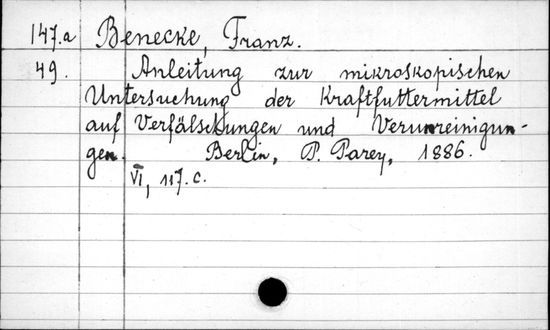 147.a Benecke, Franz.
49. Anleitung zur mikroskopischen
Untersuchung der Kraftfuttermittel
auf Verfälschungen und Verunreinigun-
gen. Berlin, P. Parey, 1886.
VI, 117. c.